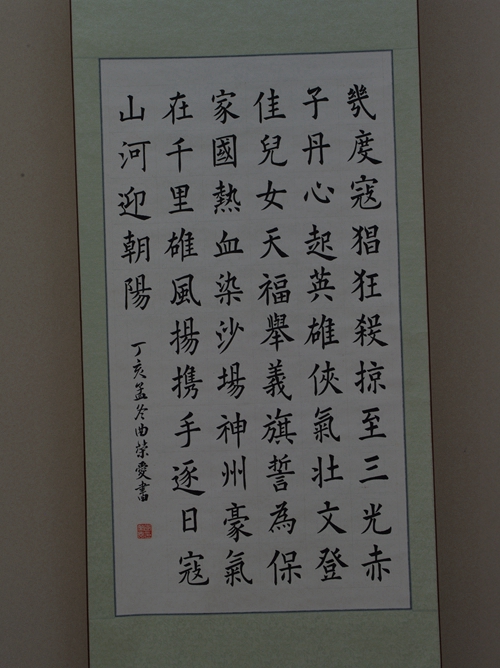 幾度寇猖狂殺掠至三光赤
子丹心起英雄俠氣壯文登
佳兒女天福舉義旗誓為保
家國熱血染沙場神州豪氣
在千里雄風揚携手逐日寇
山河迎朝陽
丁亥孟冬曲荣愛書